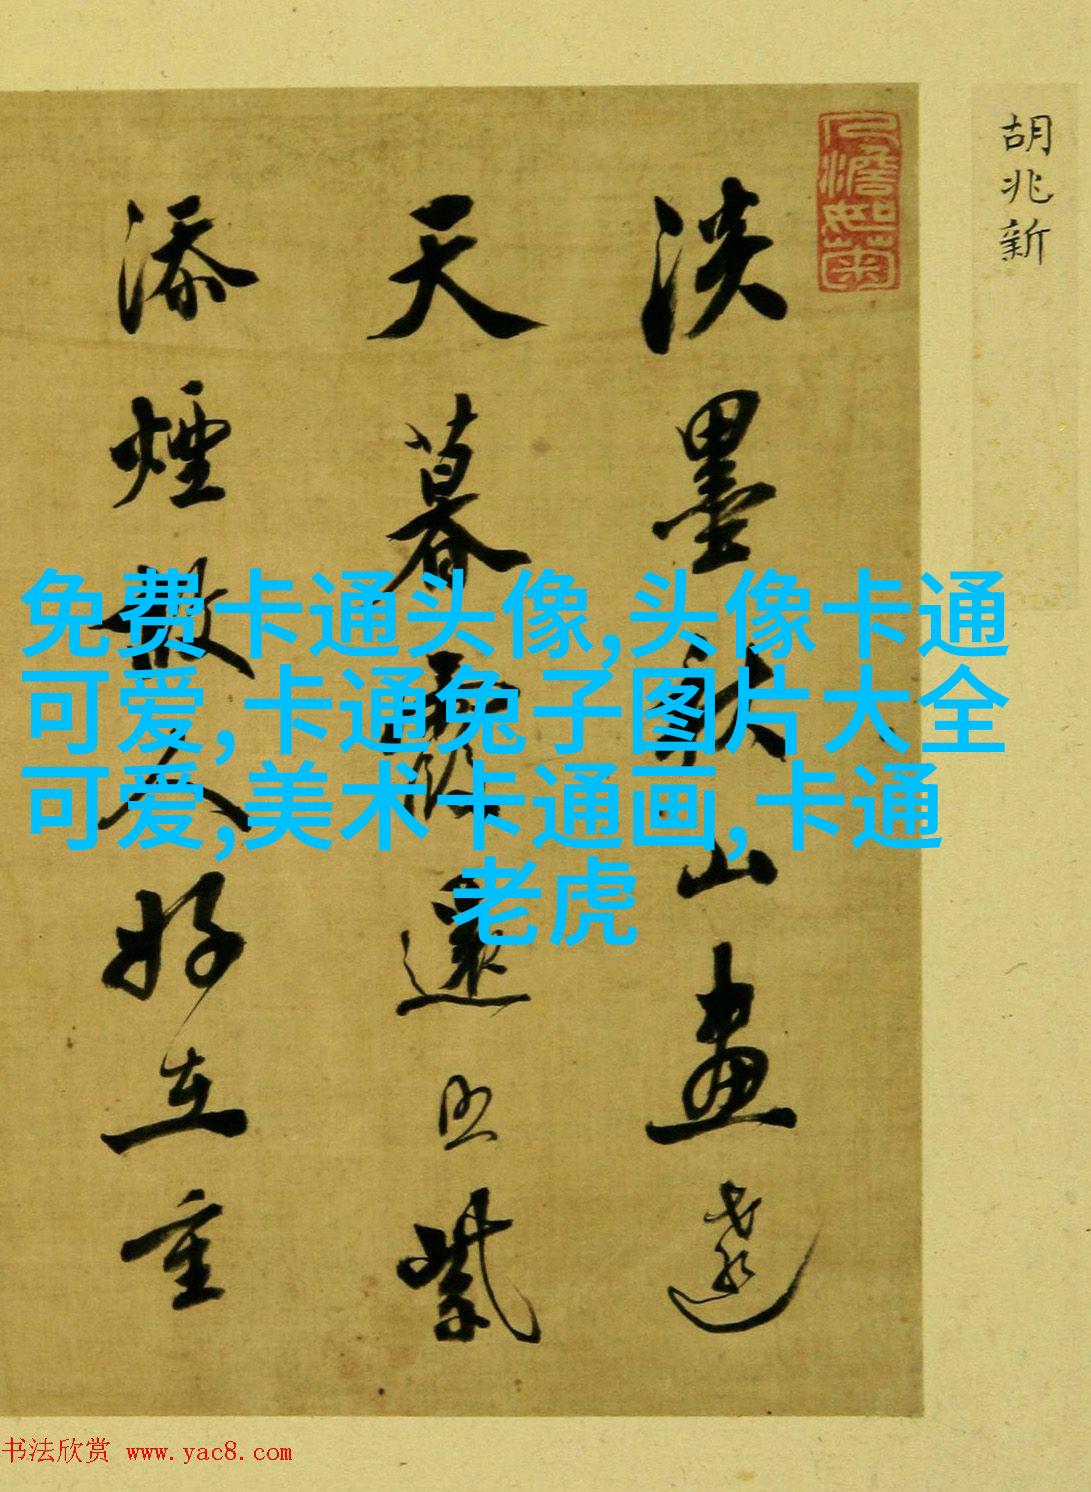 胡兆新
人澹如菊
淡墨秋山畫遠
天暮霞還照紫
添煙故人好在重
免费卡通头像,头像卡通
可爱,卡通兔子图片大全
可爱,美术卡通画,卡通
老虎
书法欣赏 www.yac8.com